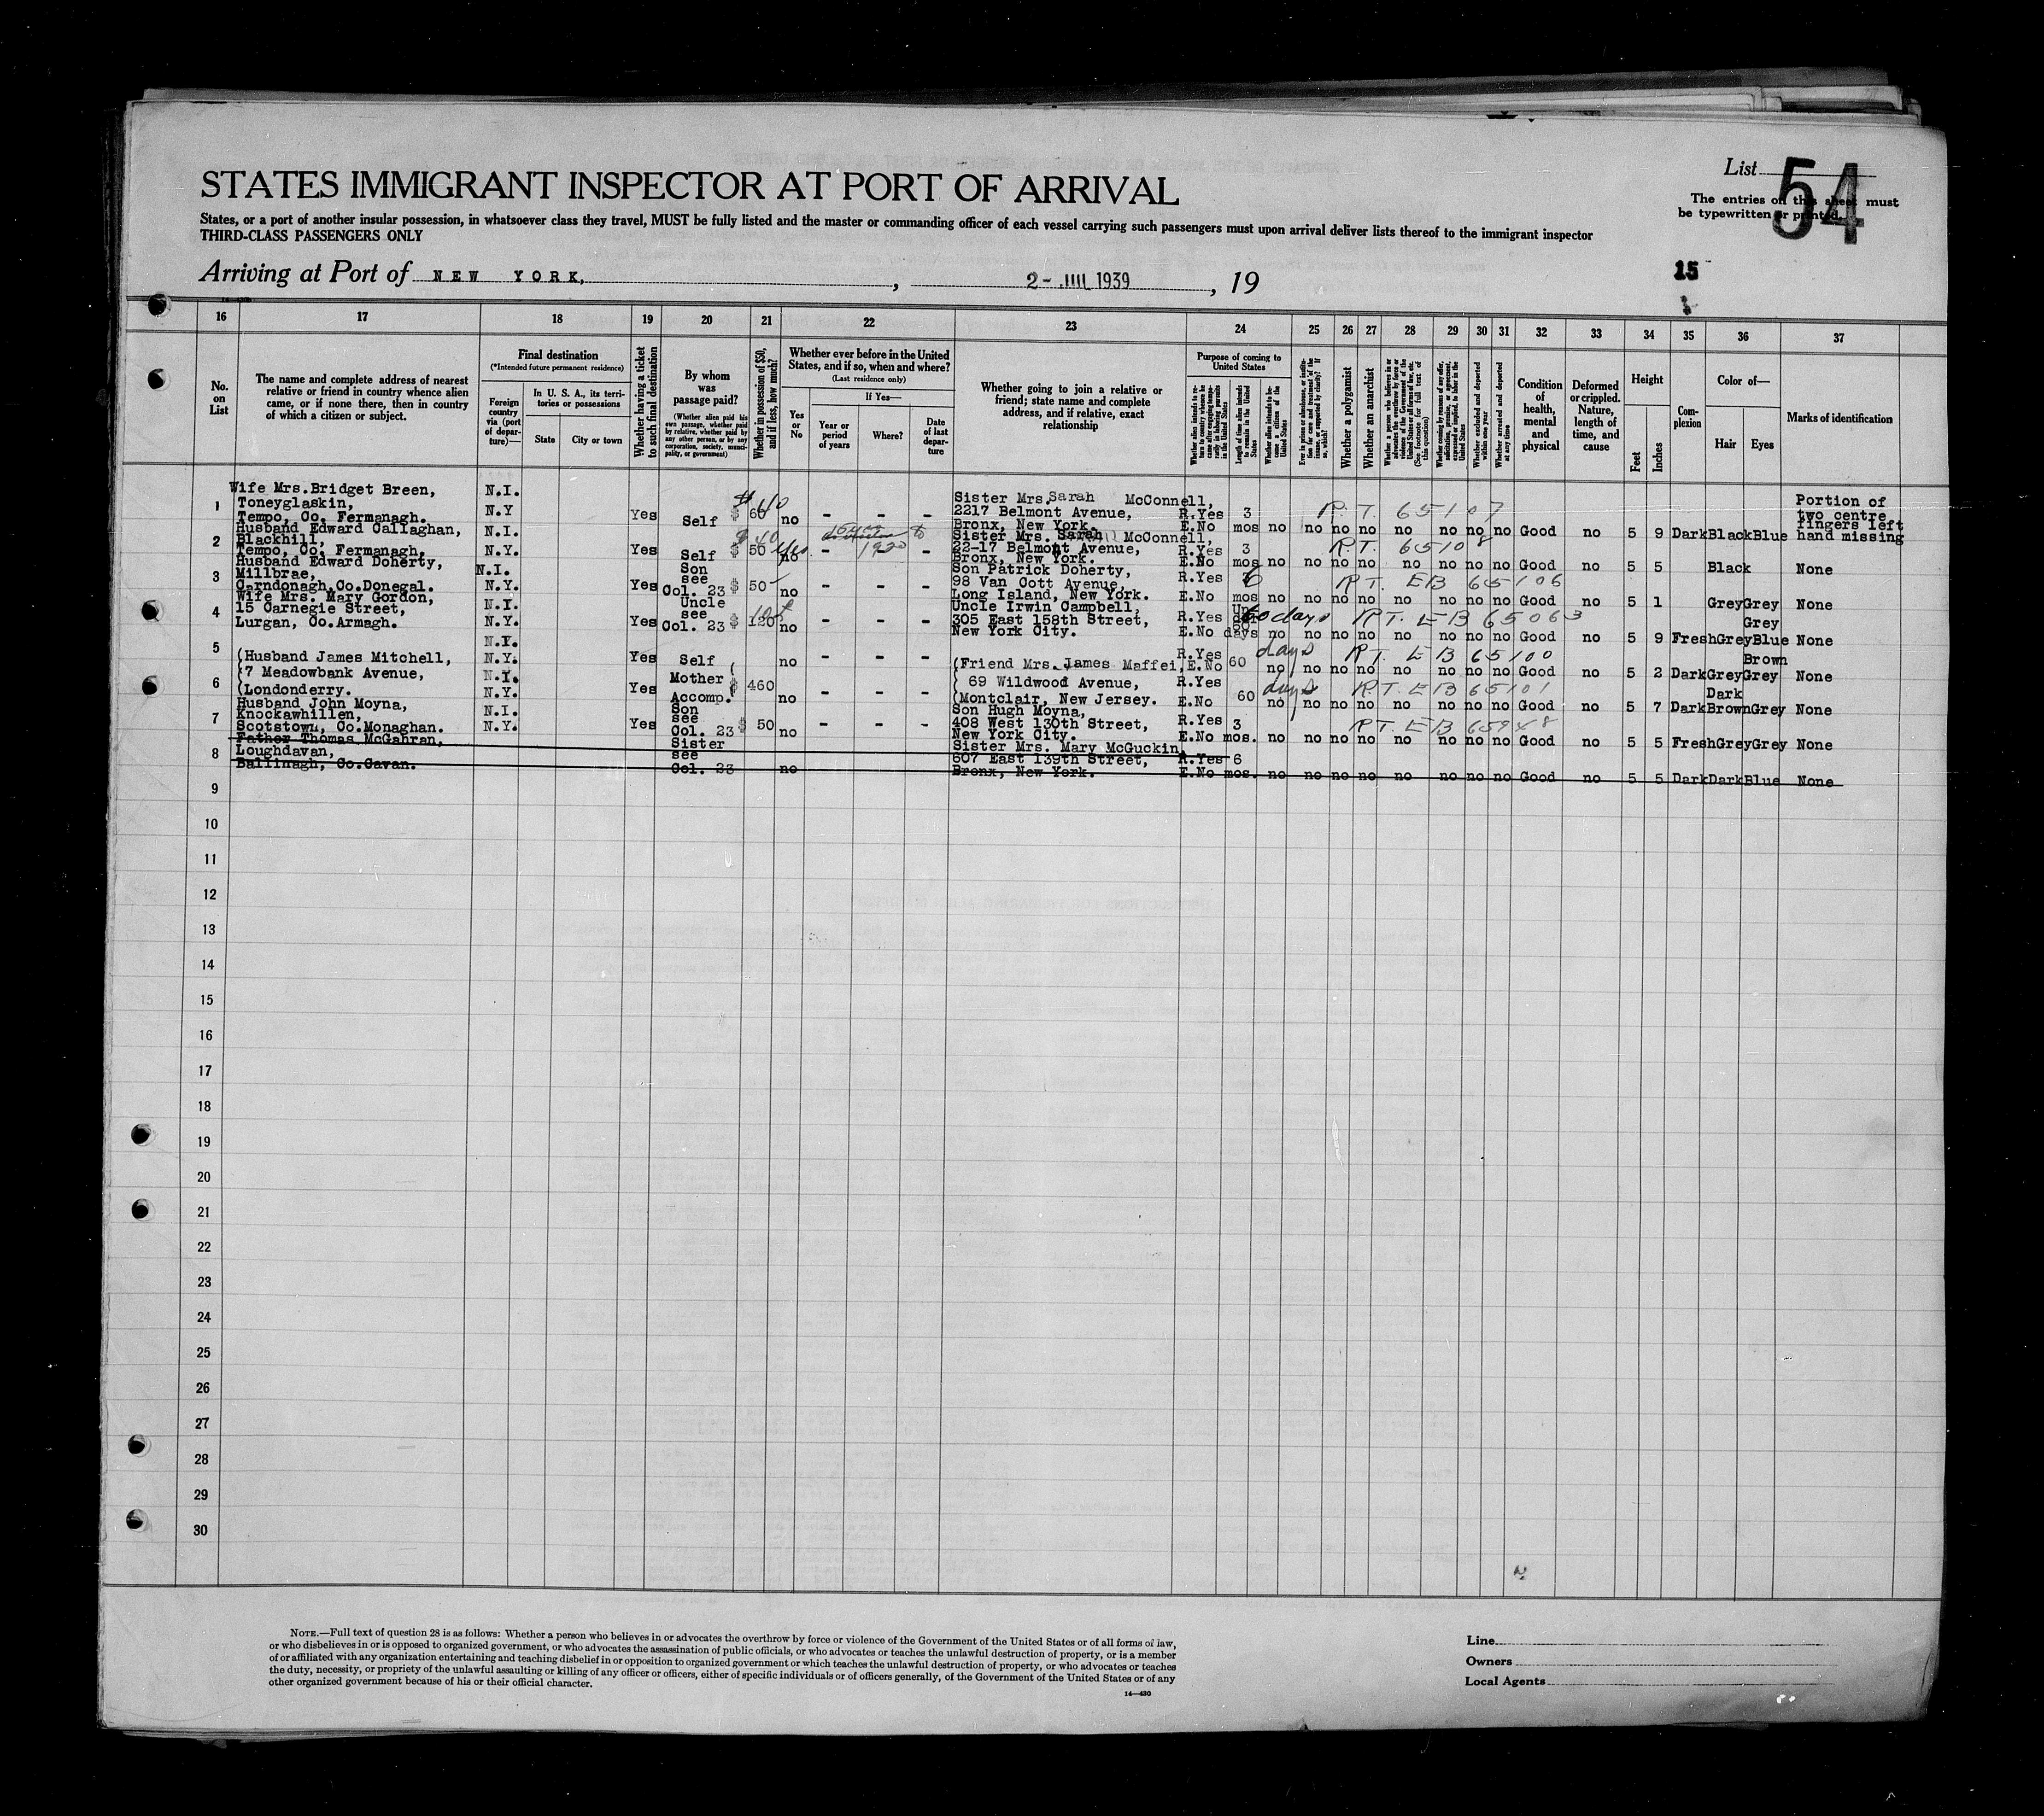 STATES IMMIGRANT INSPECTOR AT PORT OF ARRIVAL
List 54
The entries on this sheet must
be typewritten or printed.
States, or a port of another insular possession, in whatsoever class they travel, MUST be fully listed and the master or commanding officer of each vessel carrying such passengers must upon arrival deliver lists thereof to the immigrant inspector
THIRD-CLASS PASSENGERS ONLY
Arriving at Port of NEW YORK, , 2- 1939 , 19
15
16 17 18 19 20 21 22 23 24 25 26 27 28 29 30 31 32 33 34 35 36 37
No. on List
The name and complete address of nearest
relative or friend in country whence alien
came, or if none there, then in country
of which a citizen or subject.
Final destination
(*Intended future permanent residence)
Foreign country via (port of departure)—
In U. S. A., its territories or possessions
State
City or town
Whether having a ticket to such final destination
By whom was passage paid?
(Whether alien paid his own passage, whether paid by relative, whether paid by any other person, or by any corporation, society, municipality, or government)
Whether in possession of $50, and if less, how much?
Whether ever before in the United
States, and if so, when and where?
(Last residence only)
Yes or No
If Yes—
Year or period of years
Where?
Date of last departure
Whether going to join a relative or
friend; state name and complete
address, and if relative, exact
relationship
Purpose of coming to United States
Length of time alien intends to remain in the United States
Whether alien intends to become a citizen of the United States
Whether a polygamist
Whether an anarchist
Whether excluded and deported within one year
Whether arrested and deported at any time
Condition of health, mental and physical
Deformed or crippled. Nature, length of time, and cause
Height
Feet
Inches
Complexion
Color of—
Hair
Eyes
Marks of identification
1 Wife Mrs.Bridget Breen,
Toneyglaskin,
Tempo, Co. Fermanagh.
N.I.
N.Y
Yes Self $ 60 $40 no - - -
Sister Mrs.Sarah McConnell,
2217 Belmont Avenue,
Bronx, New York.
R.Yes 3
E.No mos no no no no no no no no Good no 5 9 Dark Black Blue
R.T. 65107
Portion of
two centre
fingers left
hand missing
2 Husband Edward Callaghan,
Blackhill,
Tempo, Co. Fermanagh,
N.I.
N.Y.
Yes Self $ 50 $40 no Yes - 1920 -
Sister Mrs. Sarah McConnell,
22-17 Belmont Avenue,
Bronx, New York.
R.Yes 3
E.No mos no no no no no no no no Good no 5 5 Black None
R.T. 65108
3 Husband Edward Doherty,
Millbrae,
Carndonagh,Co.Donegal.
N.I.
N.Y.
Yes Son see Col. 23 $ 50 no - - -
Son Patrick Doherty,
98 Van Cott Avenue,
Long Island, New York.
R.Yes 6
E.No mos no no no no no no no no Good no 5 1 Grey Grey None
RT. EB 65106
4 Wife Mrs. Mary Gordon,
15 Carnegie Street,
Lurgan, Co.Armagh.
N.I.
N.Y.
Yes Uncle see Col. 23 $ 120 no - - -
Uncle Irwin Campbell,
305 East 158th Street,
New York City.
R.Yes 60 days
E.No days no no no no no no no no Good no 5 9 Fresh Grey Grey Blue None
RT. EB 65063
5 (Husband James Mitchell,
N.I.
N.Y.
Yes Self no - - -
(Friend Mrs. James Maffei,
R.Yes
E.No 60 days no no no no no no no no Good no 5 2 Dark Grey Brown Grey None
RT. EB 65100
6 (7 Meadowbank Avenue,
(Londonderry.
N.I.
N.Y.
Yes Mother Accomp. $ 460 no - - -
( 69 Wildwood Avenue,
(Montclair, New Jersey.
R.Yes
E.No 60 days no no no no no no no no Good no 5 7 Dark Dark Brown Grey None
RT. EB 65101
7 Husband John Moyna,
Knockawhillen,
Scotstown, Co.Monaghan.
N.I.
N.Y.
Yes Son see Col. 23 $ 50 no - - -
Son Hugh Moyna,
408 West 130th Street,
New York City.
R.Yes 3
E.No mos. no no no no no no no no Good no 5 5 Fresh Grey Grey None
RT. EB 65948
8 Father Thomas McGahran,
Loughdavan,
Ballinagh, Co.Cavan.
Sister see Col. 23 no
Sister Mrs. Mary McGuckin,
607 East 139th Street,
Bronx, New York.
R.Yes 6
E.No mos. no no no no no no no no Good no 5 5 Dark Dark Blue None
9
10
11
12
13
14
15
16
17
18
19
20
21
22
23
24
25
26
27
28
29
30
NOTE.—Full text of question 28 is as follows: Whether a person who believes in or advocates the overthrow by force or violence of the Government of the United States or of all forms of law,
or who disbelieves in or is opposed to organized government, or who advocates the assassination of public officials, or who advocates or teaches the unlawful destruction of property, or is a member
of or affiliated with any organization entertaining and teaching disbelief in or opposition to organized government or which teaches the unlawful destruction of property, or who advocates or teaches
the duty, necessity, or propriety of the unlawful assaulting or killing of any officer or officers, either of specific individuals or of officers generally, of the Government of the United States or of any
other organized government because of his or their official character.
14—430
Line
Owners
Local Agents